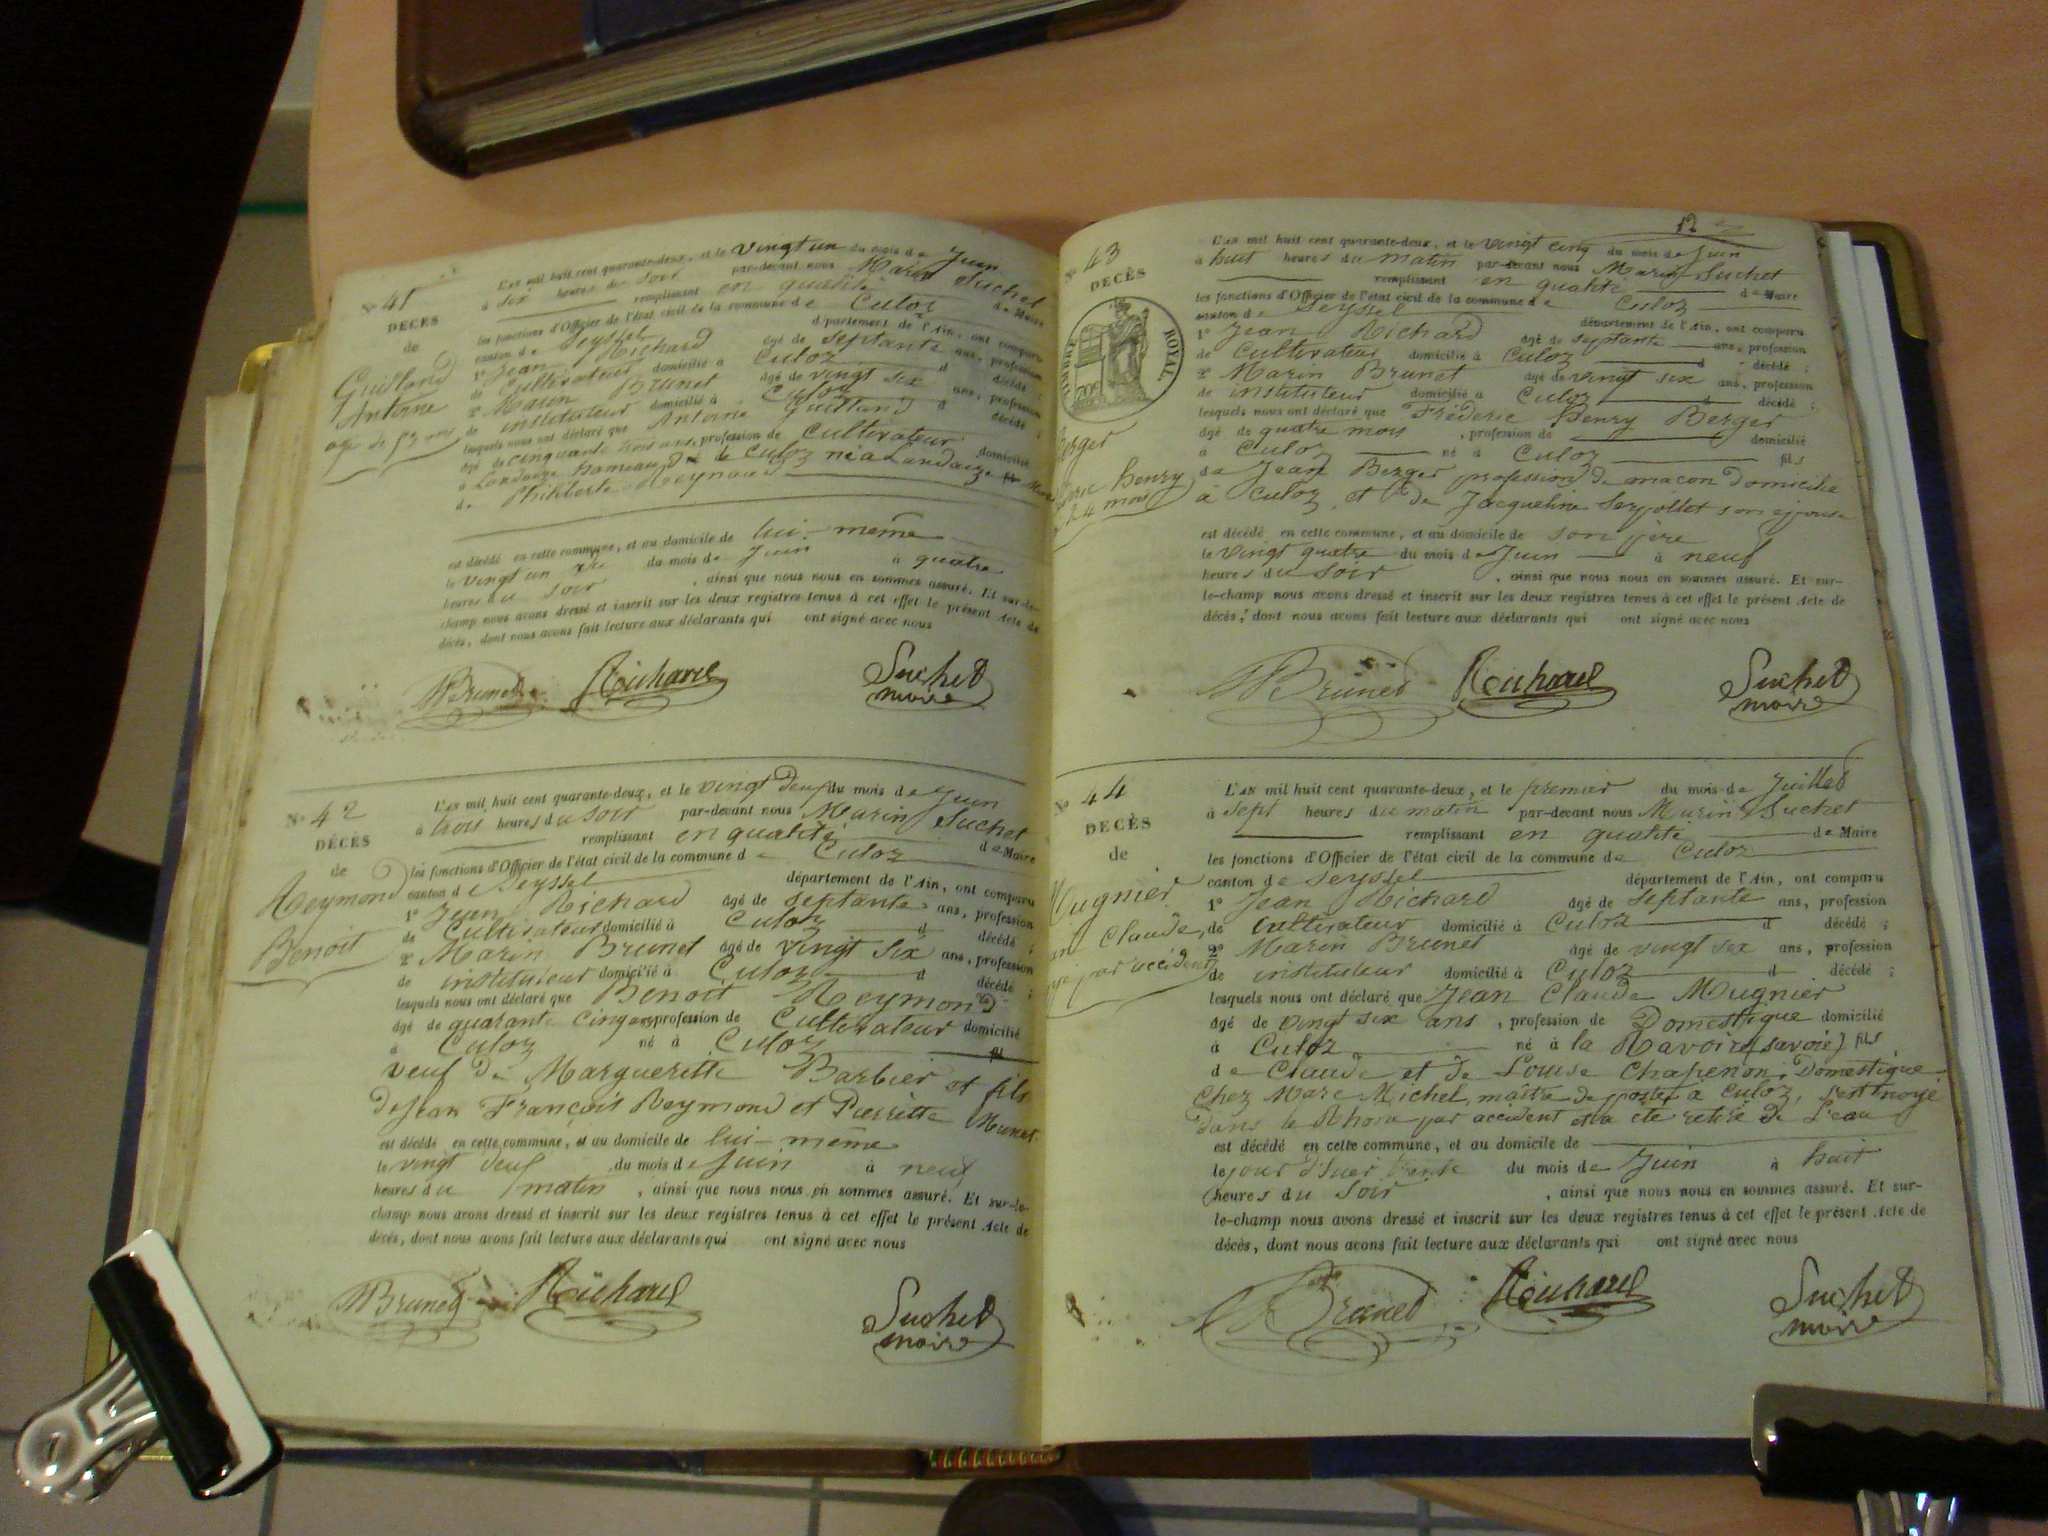 N° 41
DÉCÈS
de
Guilland
Antoine
L'AN mil huit cent quarante-deux, et le vingt un du mois de Juin
à six heures du soir par-devant nous Marin Suchet
remplissant en qualité de Maire
les fonctions d'Officier de l'état civil de la commune de Culoz
canton de Seyssel département de l'Ain, ont comparu
1° Jean Richard âgé de septante ans, profession
de Cultivateur domicilié à Culoz d décédé ;
2° Marin Brunet âgé de vingt six ans, profession
de instituteur domicilié à Culoz d décédé ;
lesquels nous ont déclaré que Antoine Guilland
âgé de cinquante trois ans, profession de Cultivateur domicilié
à Landaize hameau de Culoz né à Landaize
de Philiberte Reynaud
est décédé en cette commune, et au domicile de lui-même
le vingt un du mois de Juin à quatre
heures du soir , ainsi que nous nous en sommes assuré. Et sur-le-
champ nous avons dressé et inscrit sur les deux registres tenus à cet effet le présent Acte de
décès, dont nous avons fait lecture aux déclarants qui ont signé avec nous
Brunet Richard Suchet
maire
N° 42
DÉCÈS
de
Reymond
Benoit
L'AN mil huit cent quarante-deux, et le vingt deux du mois de Juin
à trois heures du soir par-devant nous Marin Suchet
remplissant en qualité de Maire
les fonctions d'Officier de l'état civil de la commune de Culoz
canton de Seyssel département de l'Ain, ont comparu
1° Jean Richard âgé de septante ans, profession
de Cultivateur domicilié à Culoz d décédé ;
2° Marin Brunet âgé de vingt six ans, profession
de instituteur domicilié à Culoz d décédé ;
lesquels nous ont déclaré que Benoit Reymond
âgé de quarante cinq ans, profession de Cultivateur domicilié
à Culoz né à Culoz
veuf de Margueritte Barbier et fils
de Jean François Reymond et Pierrette
est décédé en cette commune, et au domicile de lui-même
le vingt deux du mois de Juin à neuf
heures du matin , ainsi que nous nous en sommes assuré. Et sur-le-
champ nous avons dressé et inscrit sur les deux registres tenus à cet effet le présent Acte de
décès, dont nous avons fait lecture aux déclarants qui ont signé avec nous
Brunet Richard Suchet
maire
12
N° 43
DÉCÈS
TIMBRE ROYAL
Berger
Henry
4 mois
L'AN mil huit cent quarante-deux, et le vingt cinq du mois de Juin
à huit heures du matin par-devant nous Marin Suchet
remplissant en qualité de Maire
les fonctions d'Officier de l'état civil de la commune de Culoz
canton de Seyssel département de l'Ain, ont comparu
1° Jean Richard âgé de septante ans, profession
de Cultivateur domicilié à Culoz d décédé ;
2° Marin Brunet âgé de vingt six ans, profession
de instituteur domicilié à Culoz d décédé ;
lesquels nous ont déclaré que Fréderic Henry Berger
âgé de quatre mois , profession de domicilié
à Culoz né à Culoz fils
de Jean Berger profession de maçon domicilié
à Culoz et de Jacqueline Serpollet son épouse
est décédé en cette commune, et au domicile de son père
le vingt quatre du mois de Juin à neuf
heures du soir , ainsi que nous nous en sommes assuré. Et sur-
le-champ nous avons dressé et inscrit sur les deux registres tenus à cet effet le présent Acte de
décès, dont nous avons fait lecture aux déclarants qui ont signé avec nous
Brunet Richard Suchet
maire
N° 44
DÉCÈS
de
Mugnier
Claude
par accident
L'AN mil huit cent quarante-deux, et le premier du mois de Juillet
à sept heures du matin par-devant nous Marin Suchet
remplissant en qualité de Maire
les fonctions d'Officier de l'état civil de la commune de Culoz
canton de Seyssel département de l'Ain, ont comparu
1° Jean Richard âgé de septante ans, profession
de Cultivateur domicilié à Culoz d décédé ;
2° Marin Brunet âgé de vingt six ans, profession
de instituteur domicilié à Culoz d décédé ;
lesquels nous ont déclaré que Jean Claude Mugnier
âgé de vingt six ans , profession de Domestique domicilié
à Culoz né à la Ravoire (savoie) fils
de Claude et de Louise Chapenon, Domestique
chez Marc Michel, maître de postes à Culoz, s'est noyé
dans le Rhone par accident et a été retiré de l'eau
est décédé en cette commune, et au domicile de
le jour d'hier trente du mois de Juin à huit
heures du soir , ainsi que nous nous en sommes assuré. Et sur-
le-champ nous avons dressé et inscrit sur les deux registres tenus à cet effet le présent Acte de
décès, dont nous avons fait lecture aux déclarants qui ont signé avec nous
Brunet Richard Suchet
maire